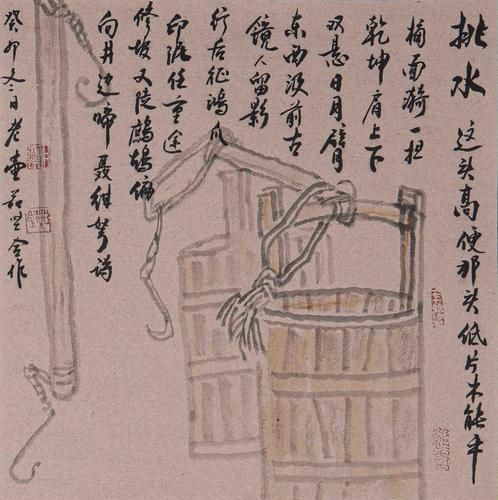 挑水 这头高便那头低片木能平
桶面漪一担
乾坤肩上下
双悬日月臂
东西汲前古
镜人留影
行后征鸿爪
印泥任重途
修坡又陡鹧鸪偏
向井边啼 聂绀弩诗
癸卯冬日 老壶 合作